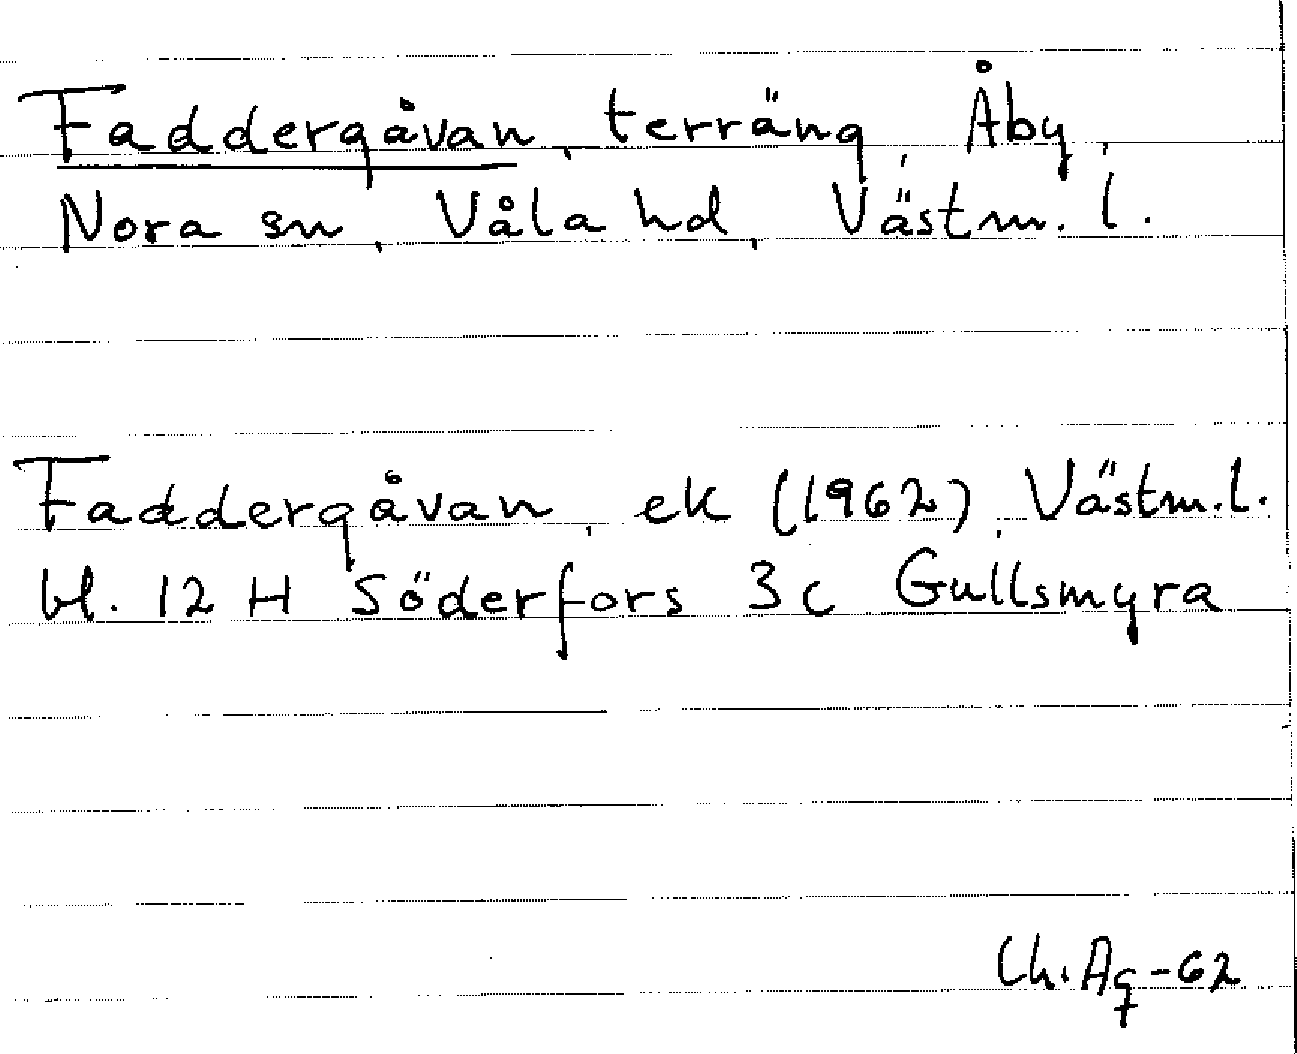 Faddergåvan, terräng, Åby,
Nora sn, Våla hd, Västm. l.
Faddergåvan, ek (1962), Västm.l.
bl. 12 H Söderfors 3c Gullsmyra
Ch.Ag-62